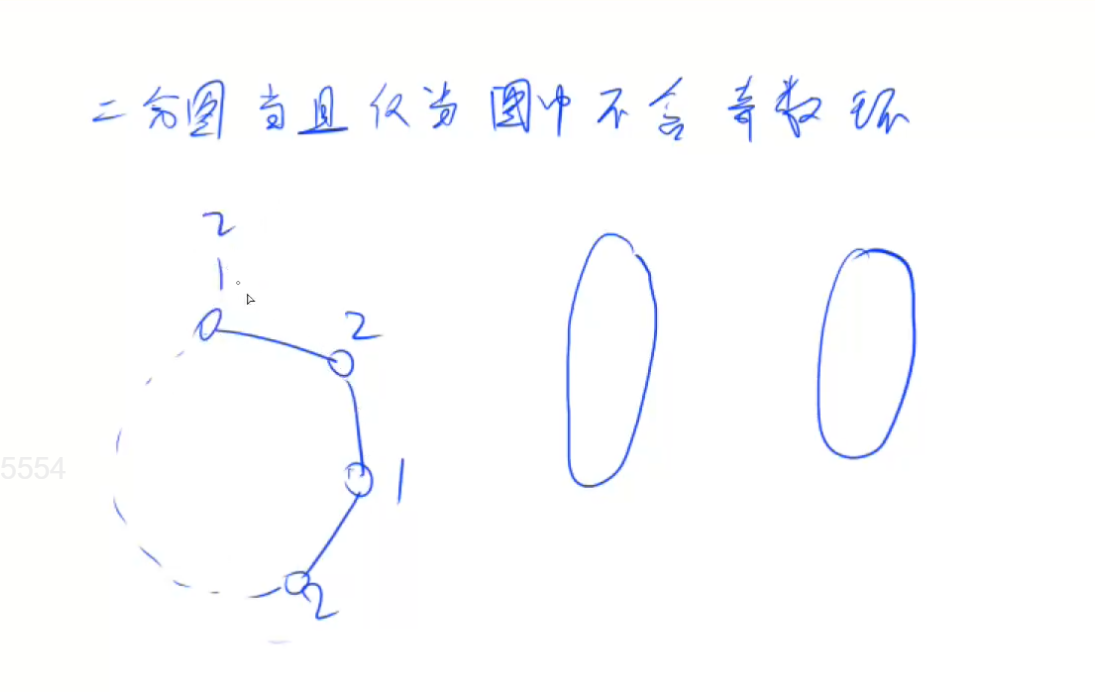 二分图当且仅当图中不含奇数环
2
1
2
1
2
5554